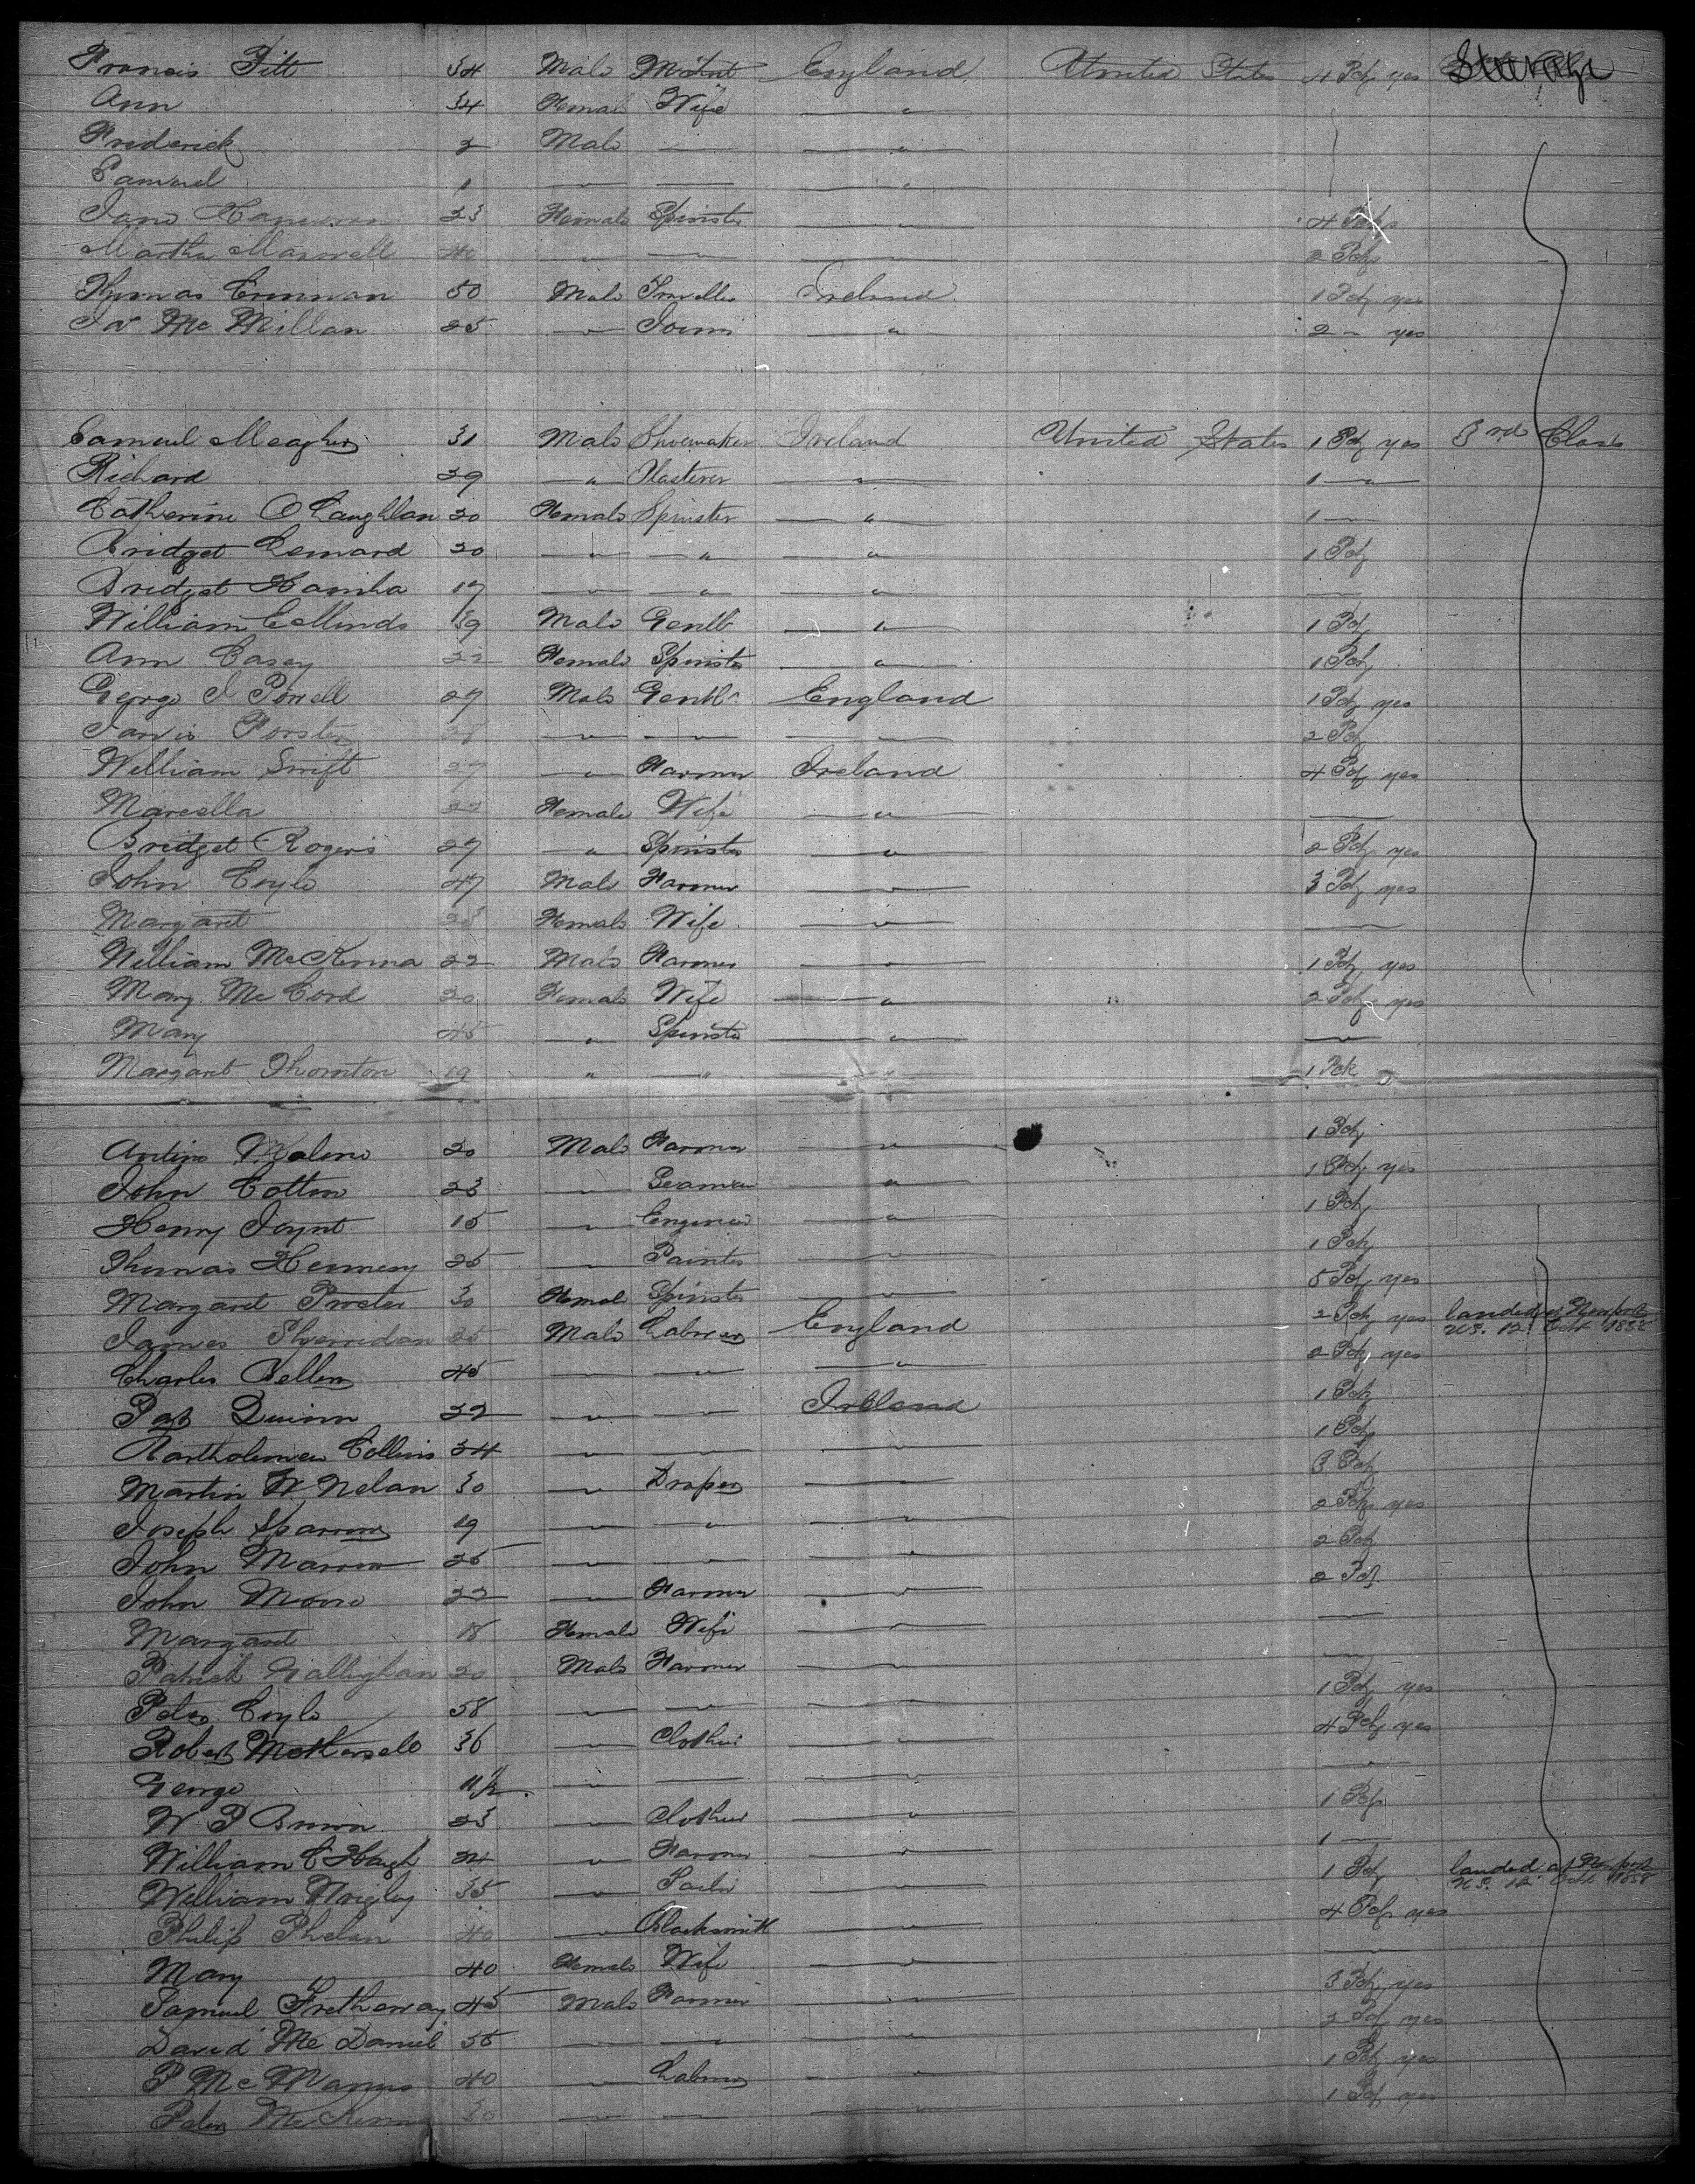 Francis Pitt 34 Male England United States 4 Pcks yes Steerage
Ann 34 Female Wife "
Frederick 2 Male — "
Samuel 1 — — "
Jane 23 Female Spinster — 4 Pckgs
Martha Maxwell 40 " — — 2 Pckgs
Thomas 50 Male Ireland 1 Pckg yes
Jas McMillan 25 " " 2 " yes
Samuel Meagher 31 Male Shoemaker Ireland United States 1 Pckg yes 3rd Class
Richard 29 " Plasterer " 1 "
Catherine O Laughlan 20 Female Spinster " 1 —
Bridget Lennard 20 " " " 1 Pckg
Bridget 17 " " " —
William 39 Male Gentln " 1 Pckg
Ann Casey 22 Female Spinster " 1 Pckg
George J Powell 27 Male Gentln England 1 Pckg yes
Jarvis Forster 28 " " " 2 Pckg
William Swift 27 " Farmer Ireland 4 Pckg yes
Marcella 22 Female Wife " —
Bridget Rogers 27 " Spinster " 2 Pckg yes
John Coyle 47 Male Farmer " 3 Pckg yes
Margaret 23 Female Wife " —
William McKenna 22 Male Farmer " 1 Pckg yes
Mary McCord 20 Female Wife " 2 Pckgs yes
Mary 45 " Spinster " "
Margaret Thornton 19 " " " 1 Pck
Malone 20 Male Farmer " 1 Pckg
John Cotton 23 " Seaman " 1 Pckg yes
Henry Joynt 15 " Engineer " 1 Pckg
Thomas Hennesy 25 " Painter " 1 Pckg
Margaret Procter 30 Female Spinster " 5 Pckg yes
James Sherridan 25 Male Laborer England 2 Pckg yes landed at Newport
N.S. 12 Oct 1858
Charles 45 — " " 2 Pckg yes
Pat Quinn 22 " — Ireland 1 Pckg
Bartholomew Collins 34 " — " 1 Pckg
Martin W Nolan 30 " Draper — 3 Pckg
Joseph Sparrow 19 " " " 2 Pckgs yes
John Marrow 25 " — " 2 Pckg
John Moore 22 " Farmer " 2 Pckg
Margaret 18 Female Wife " —
Patrick Gallighan 20 Male Farmer " "
Peter Coyle 58 " " " 1 Pckg yes
Robert 36 " Clothier " 4 Pckg yes
George 11/12 " — " "
W P Brown 23 " Clothier " 1 Pckg
William 24 " Farmer " 1 —
William 35 " " 1 Pckg landed at Newport
N.S. 12 Oct 1858
Philip Phelan 40 " Blacksmith " 4 Pckgs yes
Mary 40 Female Wife " —
Samuel Pretheway 45 Male Farmer " 3 Pckg yes
David McDaniel 35 — " " 2 Pckg yes
P McManus 40 " Laborer 1 Pckg yes
Peter McKenna 30 — — " 1 Pckg yes